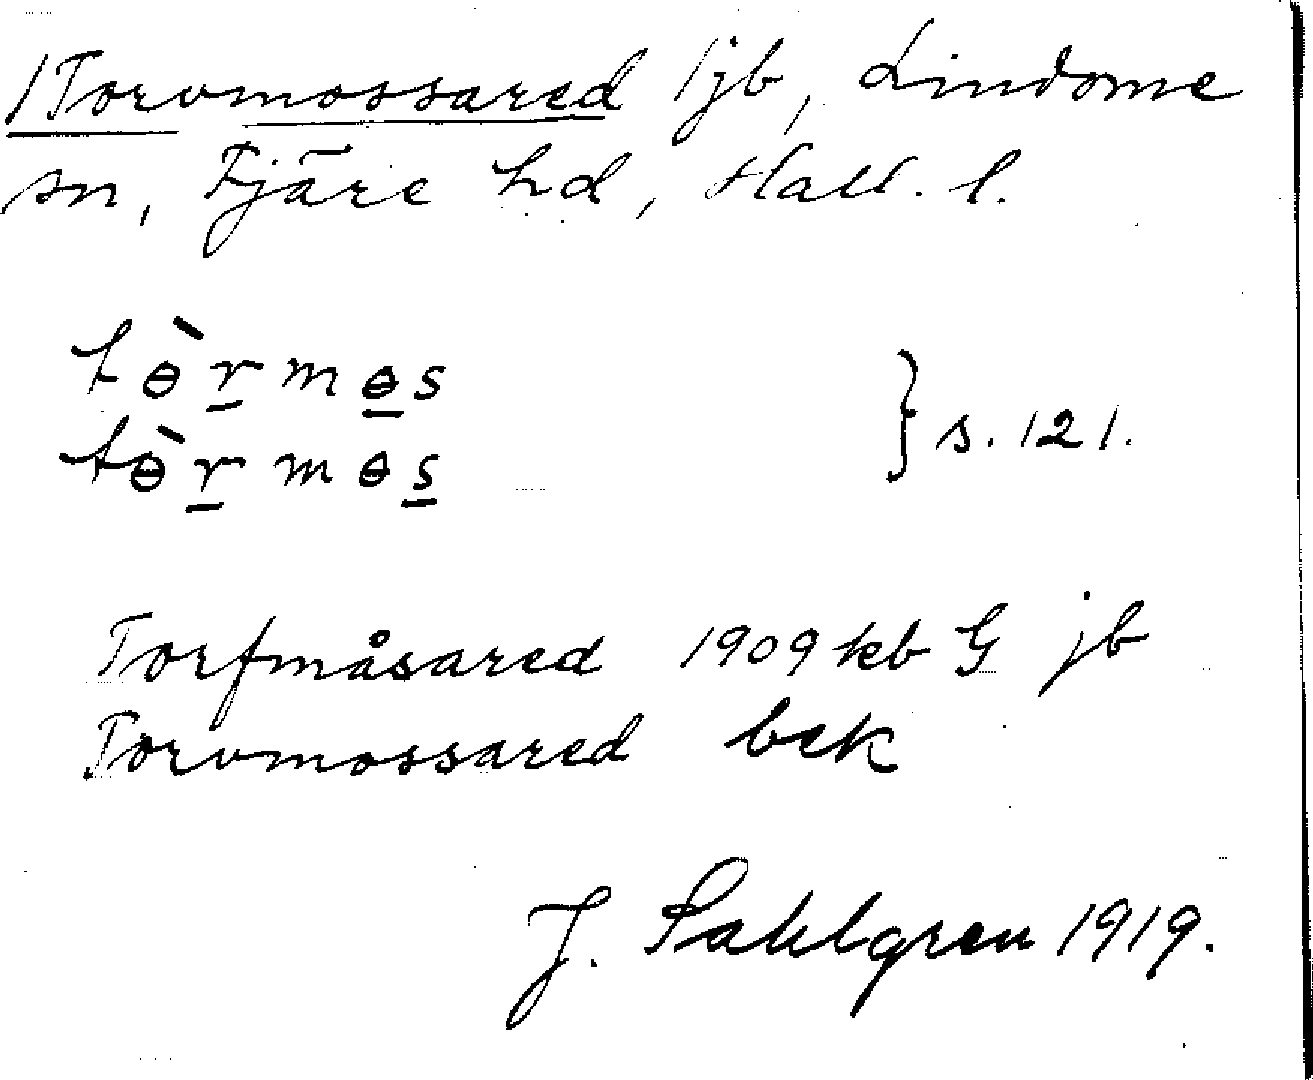 /Torvmossared ljb, Lindome
sn, Fjäre hd, Hall. l.
tɵ̀rmɵs
tɵ̀rmɵs } s. 121.
Torfmåsared 1909 kb G jb
Torvmossared bek
J. Sahlgren 1919.